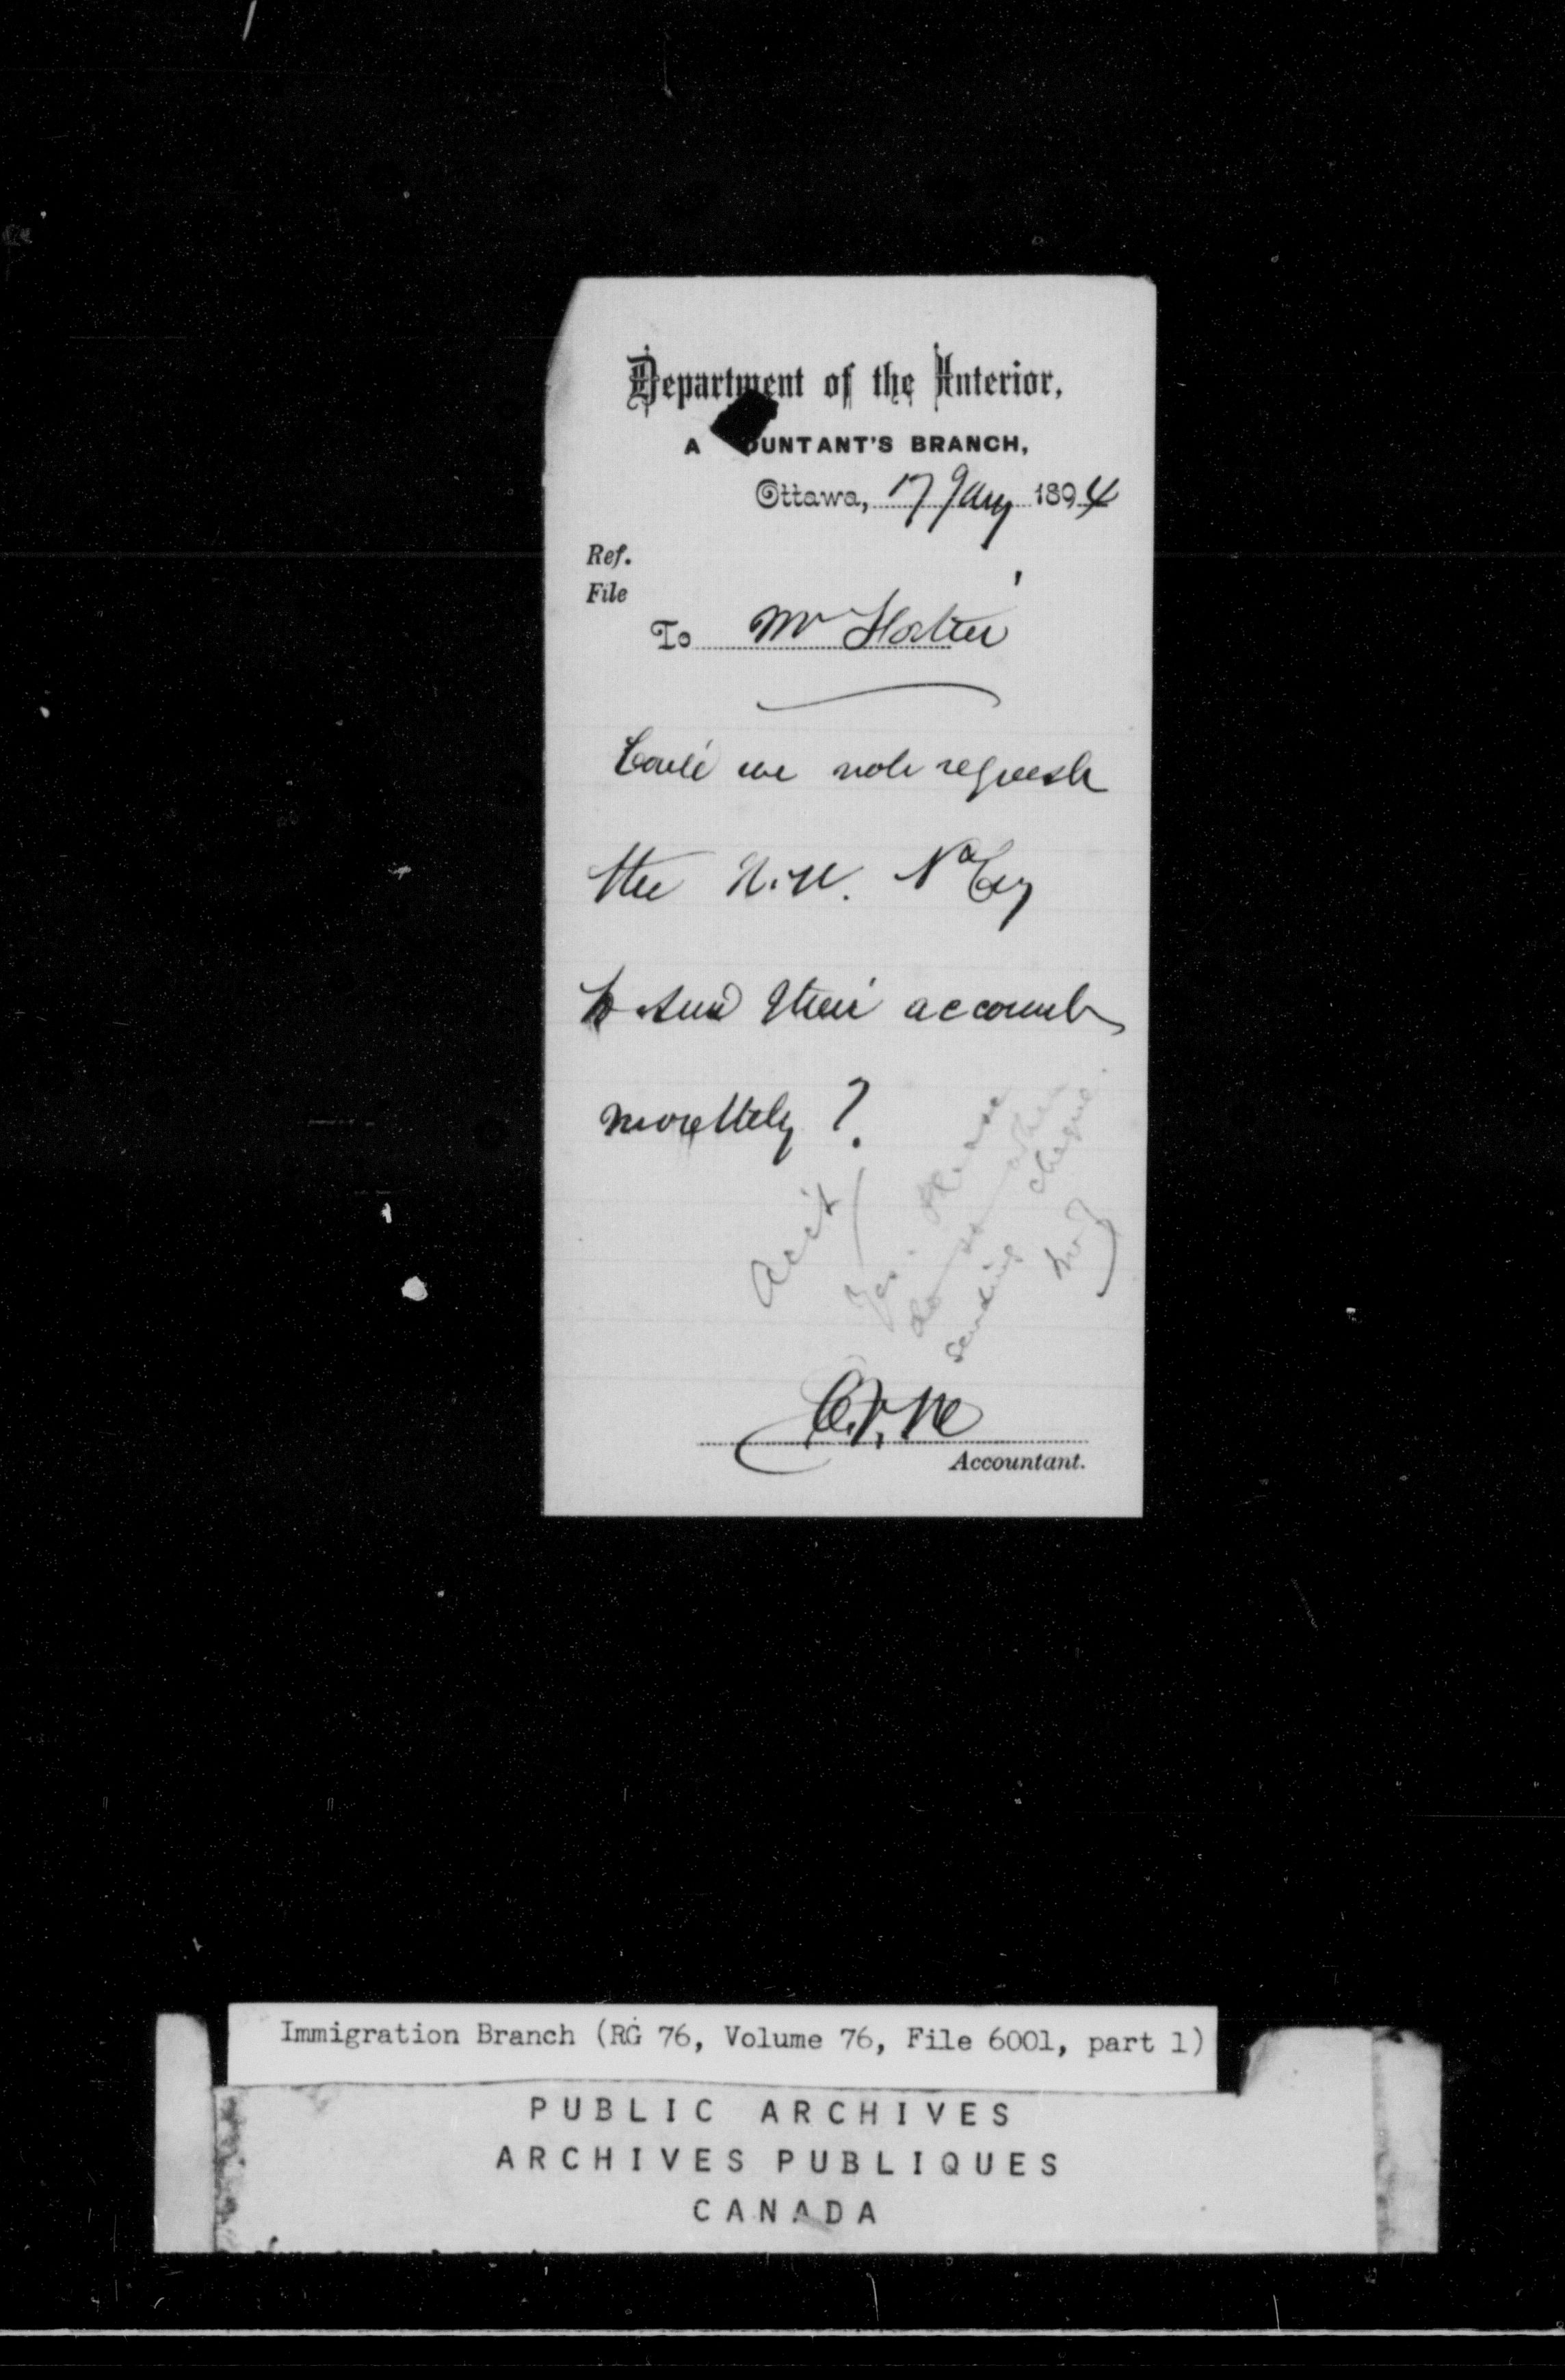 Department of the Interior,
A OUNTANT'S BRANCH,
Ottawa, 17 Jany 1894
Ref.
File
To Mr
Could we not request
the N.W. Na Coy
to send their accounts
monthly ?
Acct
Yes. Please
do so when
sending cheque.
Accountant.
Immigration Branch (RG 76, Volume 76, File 6001, part 1)
PUBLIC ARCHIVES
ARCHIVES PUBLIQUES
CANADA